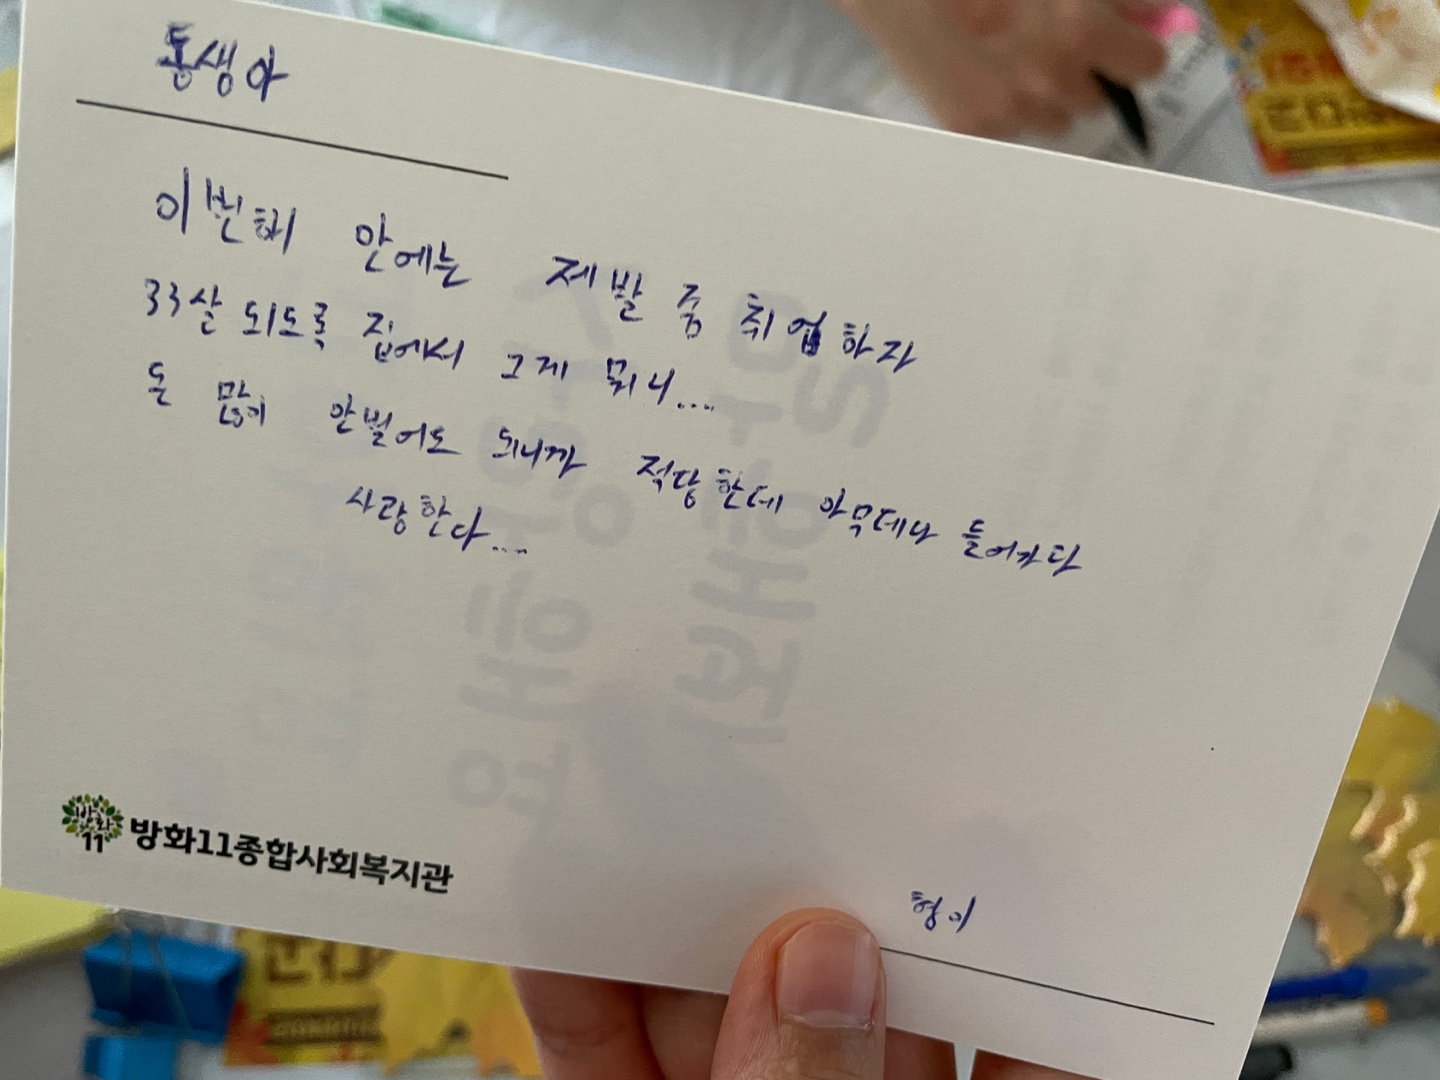 동생아
이번해 안에는 제발 좀 취업하자
33살 되도록 집에서 그게 뭐니....
돈 많이 안벌어도 되니까 적당한데 아무데나 들어가다
사랑한다....
방화
11
방화11종합사회복지관
형이